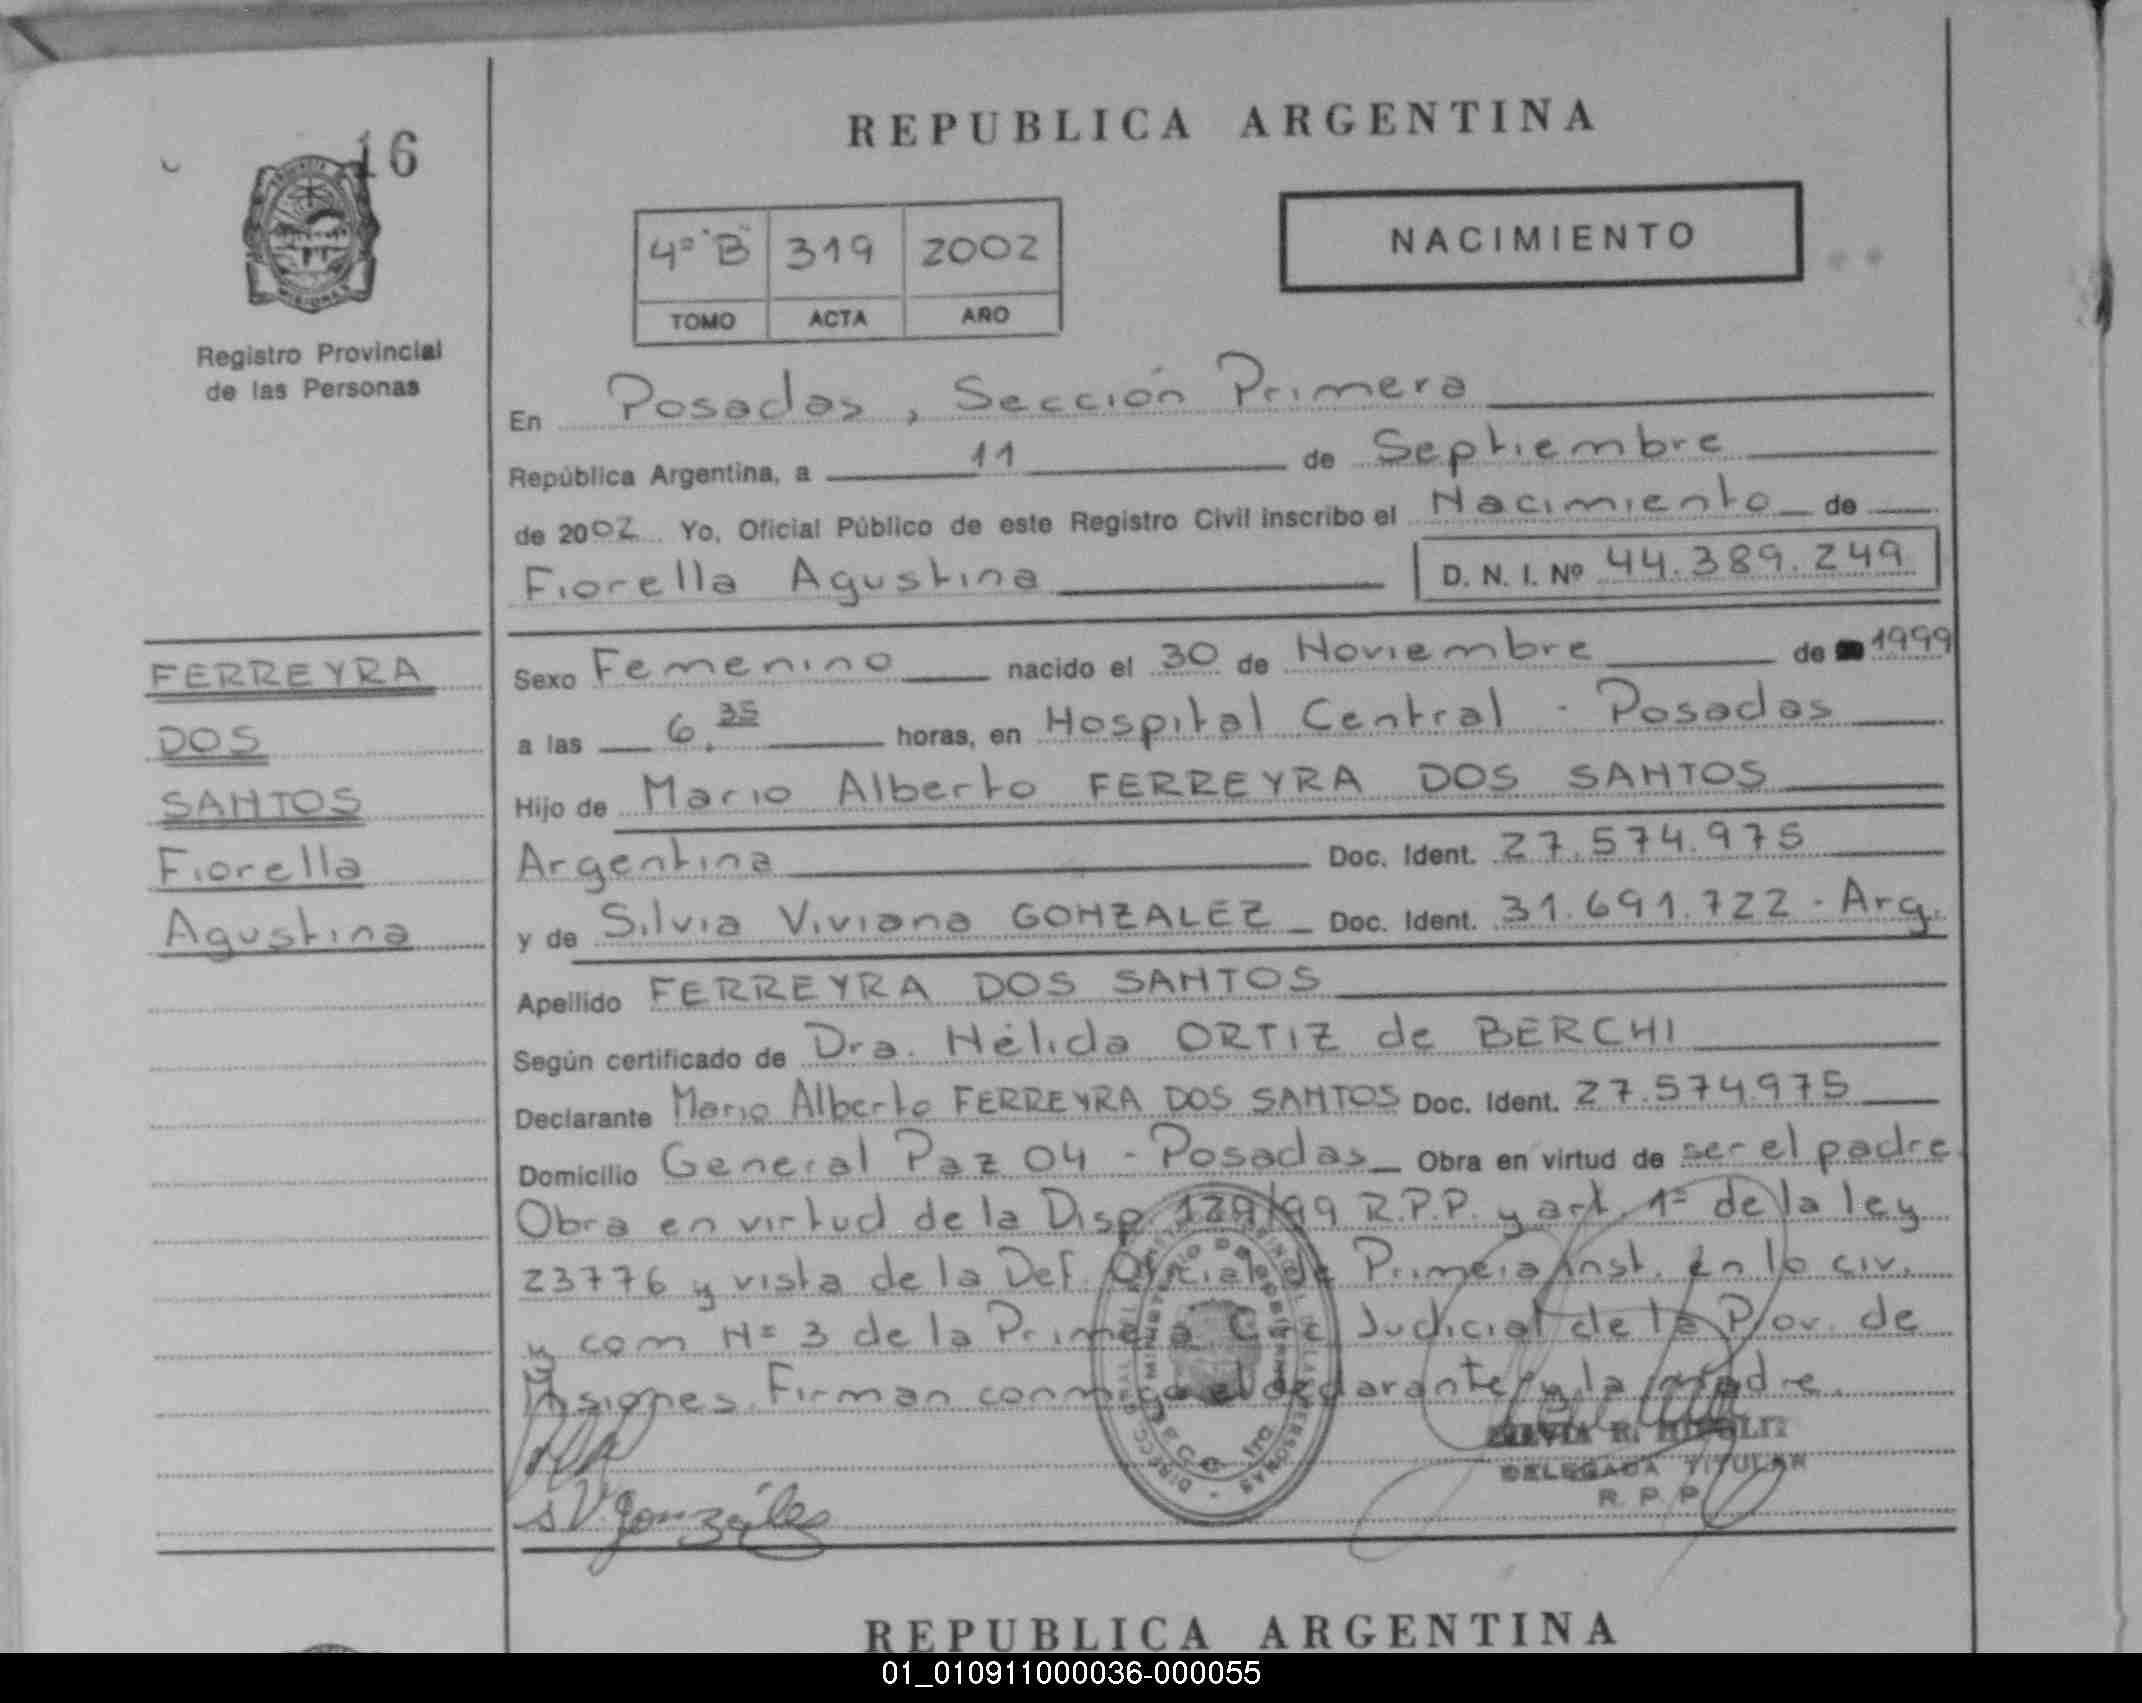 16
REPUBLICA ARGENTINA
4º "B" 319 2002
TOMO ACTA AÑO
NACIMIENTO
Registro Provincial
de las Personas
En Posadas, Sección Primera
República Argentina, a 11 de Septiembre
de 2002 Yo, Oficial Público de este Registro Civil inscribo el Nacimiento de
Fiorella Agustina D. N. I. Nº 44.389.249
FERREYRA
DOS
SANTOS
Fiorella
Agustina
Sexo Femenino nacido el 30 de Noviembre de 1999
a las 6,35 horas, en Hospital Central - Posadas
Hijo de Mario Alberto FERREYRA DOS SANTOS
Argentina Doc. Ident. 27.574.975
y de Silvia Viviana GONZALEZ Doc. Ident. 31.691.722 - Arg.
Apellido FERREYRA DOS SANTOS
Según certificado de Dra. Nélida ORTIZ de BERCHI
Declarante Mario Alberto FERREYRA DOS SANTOS Doc. Ident. 27.574.975
Domicilio General Paz 04 - Posadas Obra en virtud de ser el padre
Obra en virtud de la Disp. 129/99 R.P.P. y art. 1º de la ley
23776 y vista de la Def. Oficial de Primera Inst. en lo civ.
y com Nº 3 de la Primera Circ. Judicial de la Prov. de
Misiones. Firman conmigo el declarante y la madre.
S V. Gonzáles
DELEGADA TITULAR
R. P. P.
REPUBLICA ARGENTINA
01_010911000036-000055